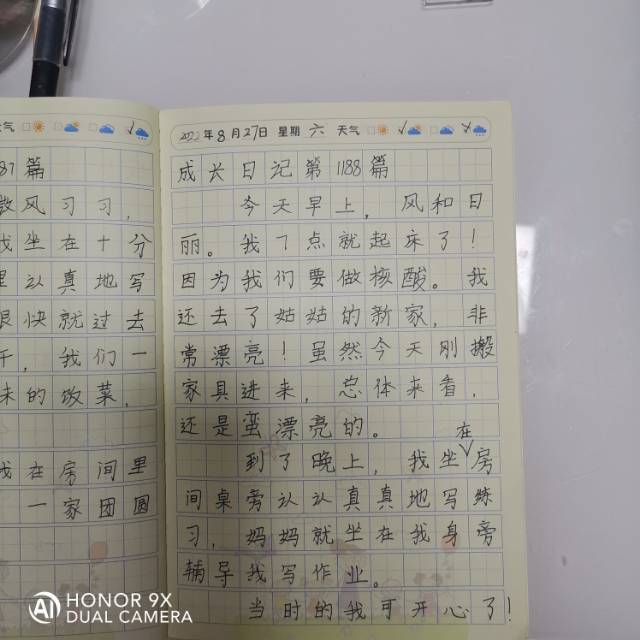 天气
2022年8月27日 星期 六 天气
87篇
微风习习，
我坐在十分
里认真地写
很快就过去
午，我们一
味的饭菜，
我在房间里
一家团圆
成长日记第1188篇
今天早上，风和日
丽。我7点就起床了！
因为我们要做核酸。我
还去了姑姑的新家，非
常漂亮！虽然今天刚搬
家具进来，总体来看，
还是蛮漂亮的。
到了晚上，我坐在房
间桌旁认认真真地写练
习，妈妈就坐在我身旁
辅导我写作业。
当时的我可开心了！
HONOR 9X
DUAL CAMERA